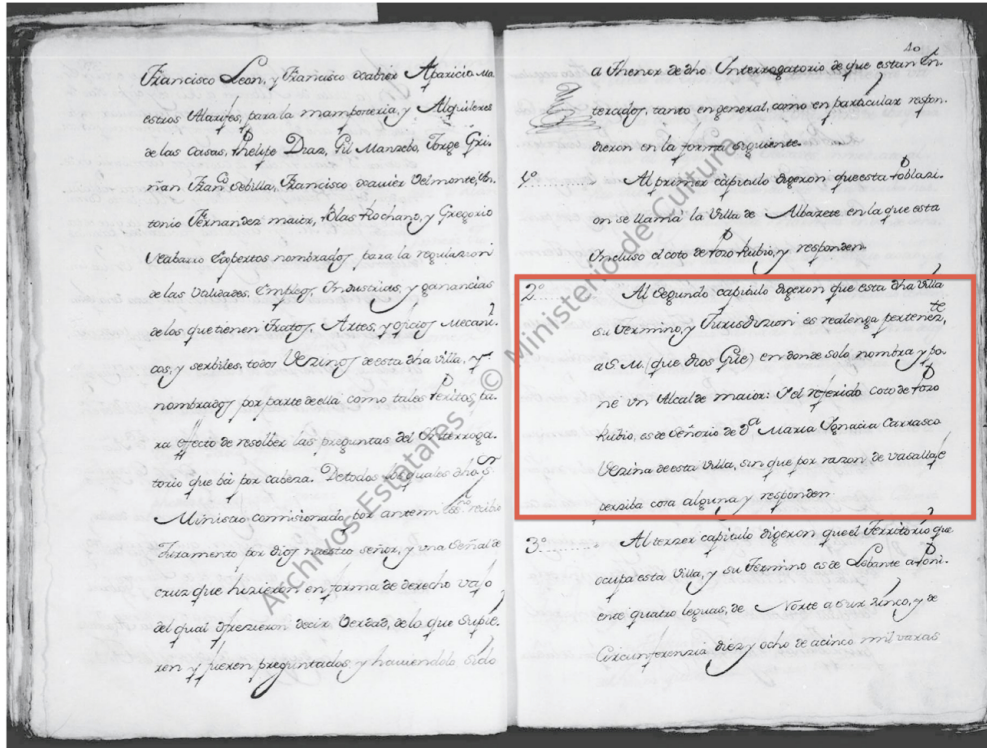 Francisco Leon, y Francisco Xabier Aparicio Ma
estros Alarifes, para la mamposteria, y Alquileres
de las Casas, Phelipe Diaz, Gil Mansebo, Jorge Gri-
ñan Fran.co Sebilla, Francisco Xavier Delmonte, An-
tonio Fernandez maior, Blas Rochano, y Gregorio
Expertos nombrados para la regulazion
de las Validades, Empleos, Industrias, y ganancias
de los que tienen Tratos, Artes, y oficios Mecani-
cos, y serbiles, todos Vezinos de esta dha Villa, y
nombrados por parte de ella como tales Peritos, pa-
ra efecto de resolber las preguntas del Interroga-
torio que bá por cabeza. De todos los quales dho S.r
Ministro comisionado por antemi el ess.no recibio
Juramento por dios nuestro señor, y una Señal de
cruz que hizieron en forma de derecho vajo
del qual ofrezieron decir Verdad, de lo que supie-
ren y fueren preguntados, y haviendolo sido
40
a thenor de dho Interrogatorio de que estan En-
terados, tanto en general, como en particular respon-
dieron en la forma siguiente.
1º Al primer capitulo digeron que esta Poblazi-
on se llama la Villa de Albazete en la que esta
Incluso el coto de Pozo Rubio, y responden
2º Al Segundo capitulo digeron que esta dha Villa
su Termino, y Jurisdizion es realenga pertenez.te
a S. M. (que Dios Gûe) en donde solo nombra y po-
ne un Alcalde maior: Y el referido Coto de Pozo
Rubio, es de Señorio de D.a Maria Ignazia Carrasco
Vezina de esta Villa, sin que por razon de vasallage
perziba cosa alguna y responden
3º Al terzer capitulo digeron que el Territorio que
ocupa esta Villa, y su Termino es de Lebante a Poni-
ente quatro leguas, de Norte a Sur zinco, y de
Circunferenzia diez y ocho de a cinco mil varas
Archivos Estatales © Ministerio de Cultura